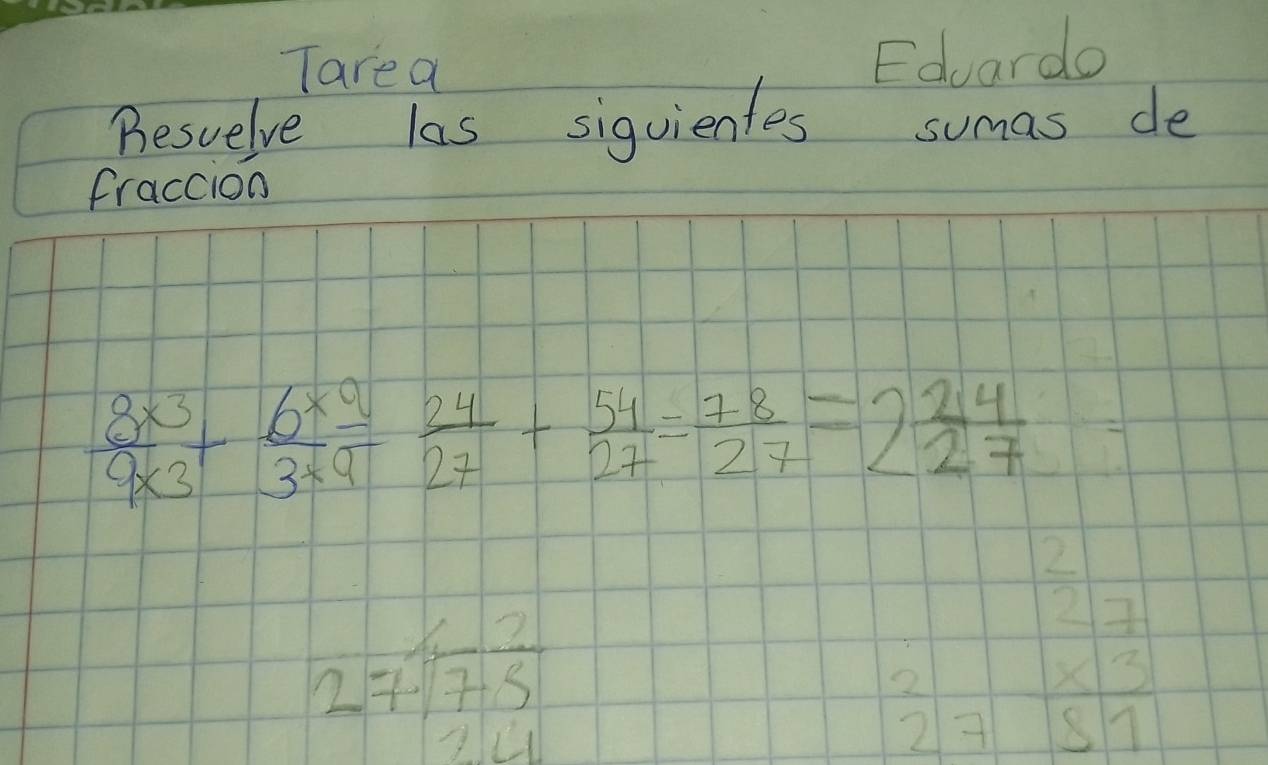 Tarea Eduardo
Resuelve las siguientes sumas de
fracción
8×3/9×3 + 6×9/3×9 = 24/27 + 54/27 = 78/27 = 2 24/27 =
2
27
2
27 78
×3
2
24
27
81